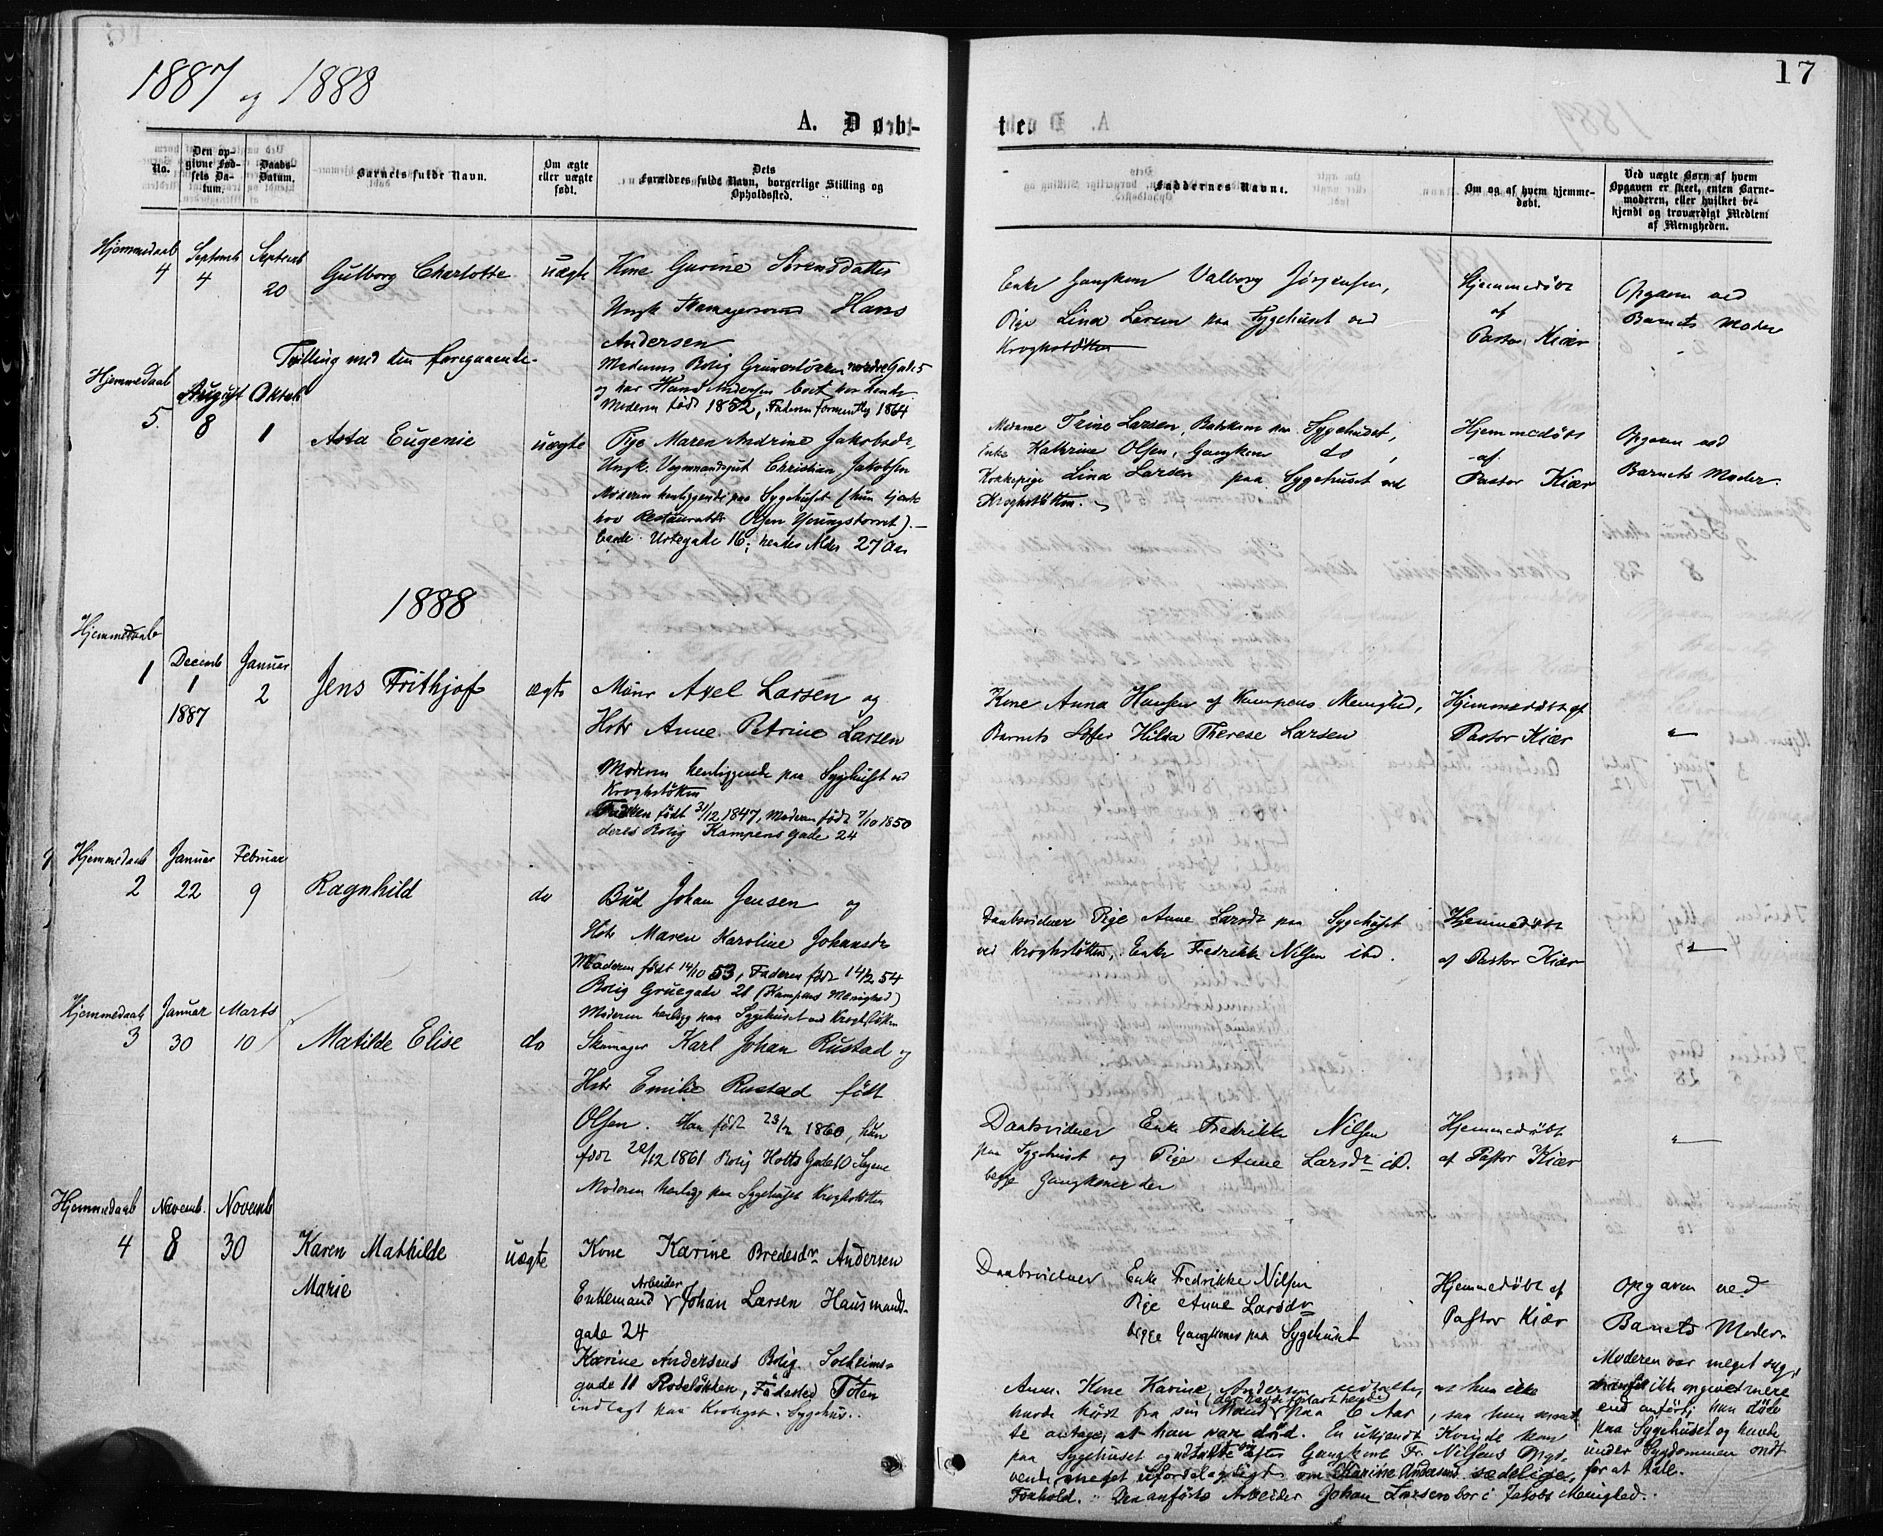 1887 og 1888
17
A. Døb-
te.
No.
Den opgivne Fødsels Datum.
Daabs Datum.
Barnets fulde Navn.
Om ægte eller uægte født.
Dets Forældres fulde Navn, borgerlige Stilling og Opholdssted.
Faddernes Navne.
Om og af hvem hjemmedøbt.
Ved uægte Børn af hvem Opgaven er skeet, enten Barnemoderen, eller hvilket bekjendt og troværdigt Medlem af Menigheden.
Hjemmedaab
4
Septemb
4
Septemb
20
Gulborg Charlotte
uægte
Kone Gurine Sørensdatter
Ungk Skomagersvend Hans
Andersen
Moderens Bolig Grünerløkken nordre Gade 5
og har Hans Andersen boet hos hende
Moderen født 1852, Faderen formentlig 1864
Tvilling med den foregaaende.
Enke Gangkone Valborg Jørgensen,
Pige Lina Larsen paa Sygehuset ved
Krohgstøtten
Hjemmedøbt
af
Pastor Kiær
Opgaven ved
Barnets Moder
Hjemmedaab
5.
August
8
Oktob
1
Asta Eugenie
uægte
Pige Maren Andrine Jakobsdr,
Ungk. Vognmandsgut Christian Jakobsen
Moderen henliggende paa Sygehuset (hun tjente
hos Restauratør Olsen Youngstorvet).
boede Urtegade 16; hendes Alder 27 Aar
Madame Trine Larsen, Badekone paa Sygehuset,
Enke Kathrine Olsen, Gangkone do,
Kokkepige Lina Larsen paa Sygehuset ved
Krohgstøtten.
Hjemmedøbt
af
Pastor Kiær
Opgaven ved
Barnets Moder.
1888
Hjemmedaab
1
Decemb
1
1887
Januar
2
Jens Frithjof
ægte
Murer Axel Larsen og
Hstr Anne Petrine Larsen
Moderen henliggende paa Sygehuset ved
Kroghstøtten
Faderen født 31/12 1847, Moderen født 7/10 1850
deres Bolig Kampens gade 24
Kone Anna Hansen af Kampens Menighed,
Barnets Søster Hilda Therese Larsen
Hjemmedøbt af
Pastor Kiær
"
Hjemmedaab
2
Januar
22
Februar
9
Ragnhild
do
Bud Johan Jensen og
Hstr Maren Karoline Johansdr
Moderen født 14/10 53, Faderen født 14/2 54
Bolig Gruegade 26 (Kampens Menighed)
Moderen henligg paa Sygehuset ved Kroghstøtten
Daabsvidner Pige Anne Larsdr paa Sygehuset
ved Kroghstøtten, Enke Fredrikke Nilsen ibd.
Hjemmedøbt
af Pastor Kiær
"
Hjemmedaab
3
Januar
30
Marts
10
Matilde Elise
do
Skomager Karl Johan Rustad og
Hstr Emilie Rustad født
Olsen. Han født 23/12 1860, hun
født 22/12 1861 Bolig Holts Gade 10
Moderen henligg paa Sygehuset Kroghstøtten
Daabsvidner Enke Fredrikke Nilsen
paa Sygehuset og Pige Anne Larsdr ibd.
begge Gangkoner der
Hjemmedøbt
af Pastor Kiær
"
Hjemmedaab
4
Novemb.
8
Novemb
30
Karen Mathilde
Marie
uægte
Kone Karine Bredesdr Andersen
Enkemand Arbeider Johan Larsen Hausmands-
gade 24
Karine Andersens Bolig Solheims-
gade 11 Rodeløkken, Fødested Toten
indlagt paa Krohgst. Sygehus.
Daabsvidner Enke Fredrikke Nilsen
Pige Anne Larsdr
begge Gangkoner paa Sygehuset
Hjemmedøbt af
Pastor Kiær
Opgaven ved
Barnets Moder.
Moderen var meget syg,
ikke opgive mere
end anført; hun døde
paa Sygehuset og havde
under Sygdommen ondt
for at tale.
Anm. Kone Karine Andersen udtalte, at hun ikke
havde hørt fra sin Mand (der havde forladt hende) paa 6 Aar, saa hun maat
te antage, at han var død. En ukjendt Kvinde kom
paa Sygehuset og udtalte efter Gangkone Fr. Nilsens Opgi-
vende meget ufordelagtigt om Karine Andersens sædelige
Forhold. Den anførte Arbeider Johan Larsen bor i Jakobs Menighed.